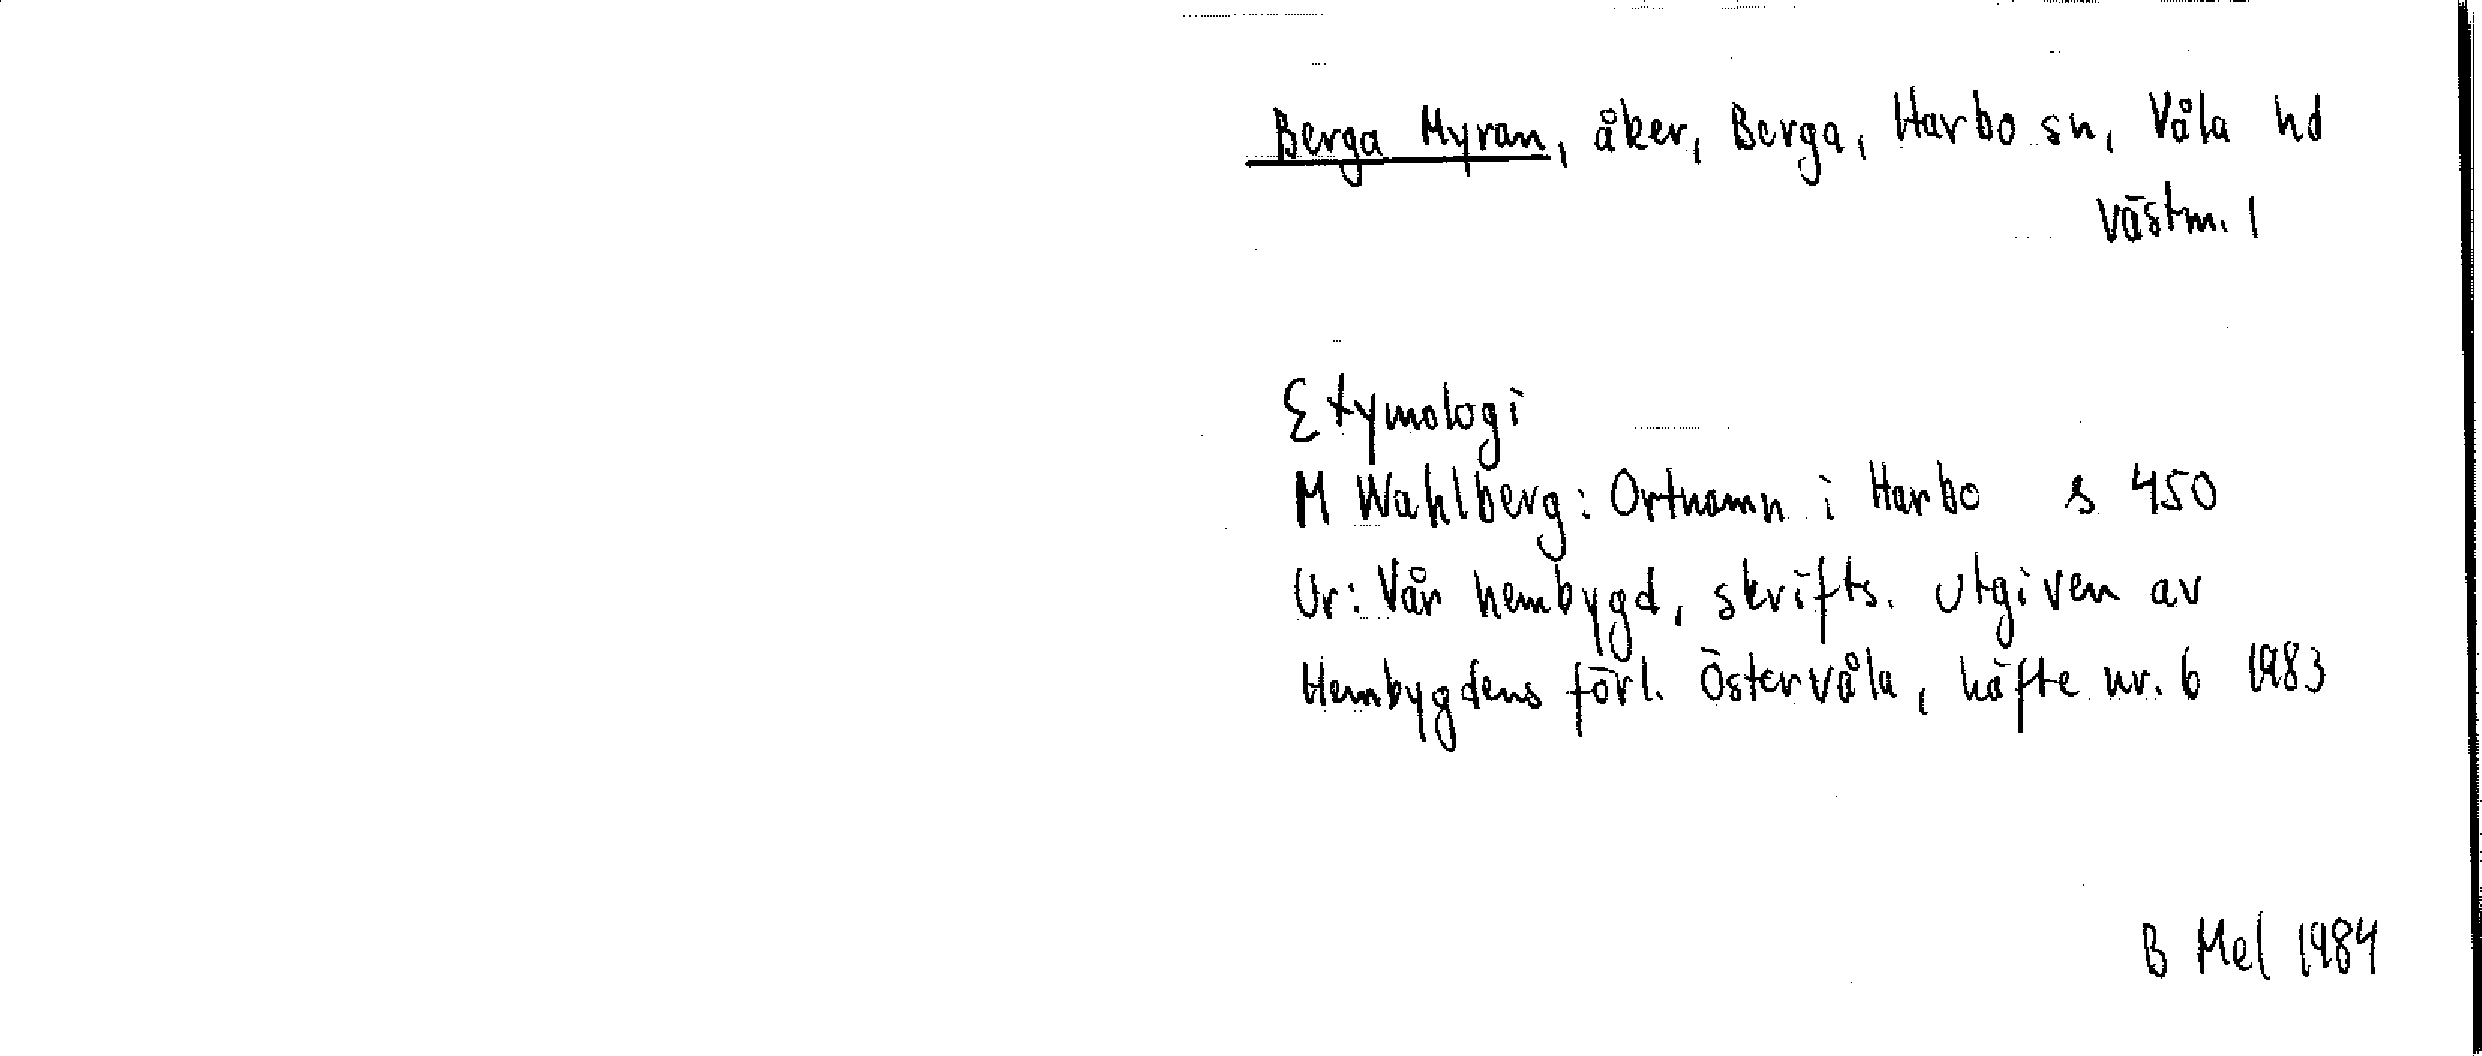 Berga Myran, åker, Berga, Harbo sn, Våla hd
Västm. l
Etymologi
M Wahlberg: Ortnamn i Harbo s 450
Ur: Vår hembygd, skrifts. utgiven av
Hembygdens förl. Östervåla, häfte nr. 6 1983
B Mel 1984